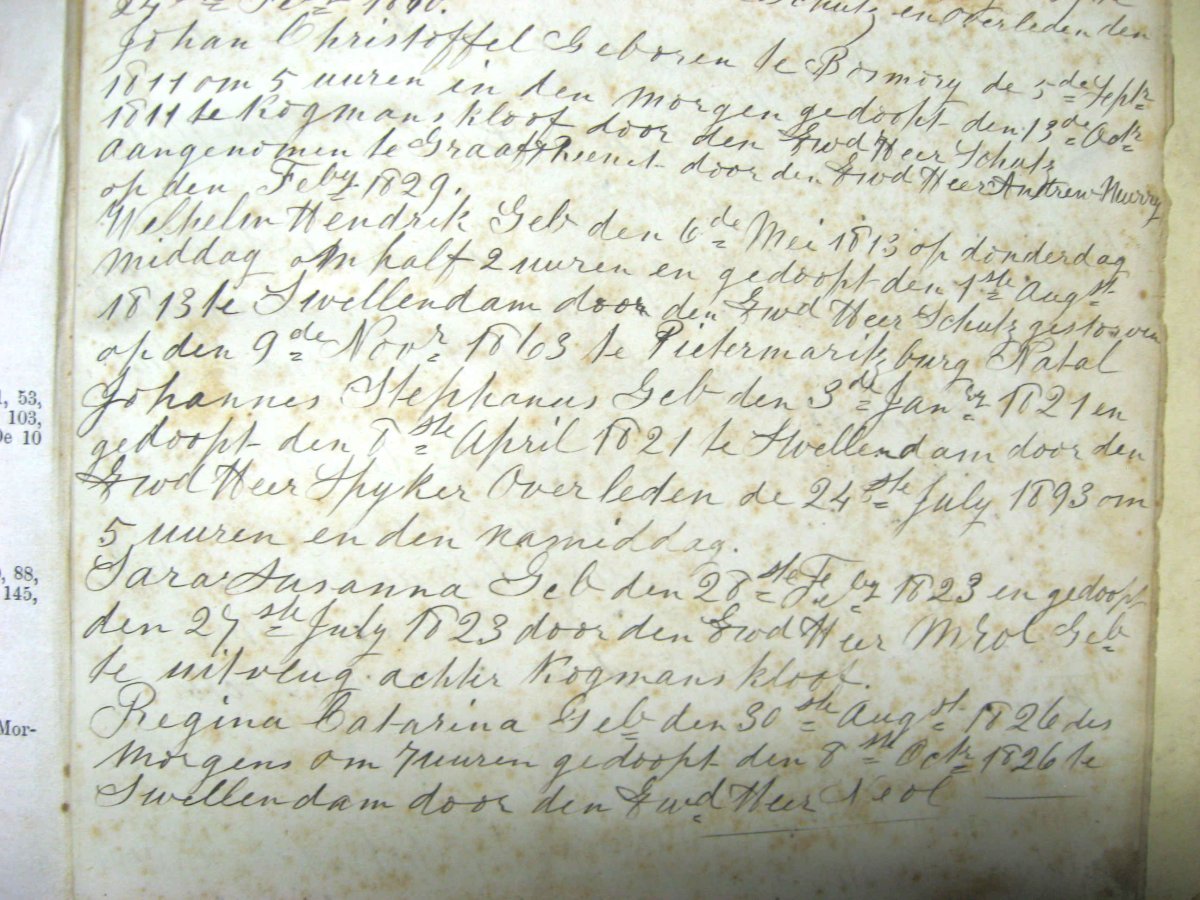 24 ste Feb 1860. Schutz en overleden den
Johan Christoffel Geboren te Bosmory de 5 de Septr
1811 om 5 uuren in den morgen gedoopt den 13 de Octr
1811 te Kogmans kloof door den Ewd Heer Schutz
aangenomen te Graaff Reenet door den Ewd Heer Andrew Murry
op den Feby 1829.
Welhelm Hendrik Geb den 6 de Mei 1813 op donderdag
middag om half 2 uuren en gedoopt den 1 ste Augst
1813 te Swellendam door den Ewd Heer Schutz gestorven
op den 9 de Novr 1863 te Pietermaritzburg Natal
Johannes Stephanus Geb den 3 de Janry 1821 en
gedoopt den 8 ste April 1821 te Swellendam door den
Ewd Heer Spyker Overleden de 24 ste July 1893 om
5 uuren en den namiddag.
Sara Susanna Geb den 28 ste Feby 1823 en gedoopt
den 27 ste July 1823 door den Ewd Heer Mrol Geb
te uitvlug achter Kogmans kloof.
Regina Catarina Geb den 30 ste Augst 1826 des
morgens om 7 uuren gedoopt den 8 ste Octr 1826 te
Swellendam door den Ewd Heer Neol
1, 53,
103,
De 10
88,
145,
Mor-